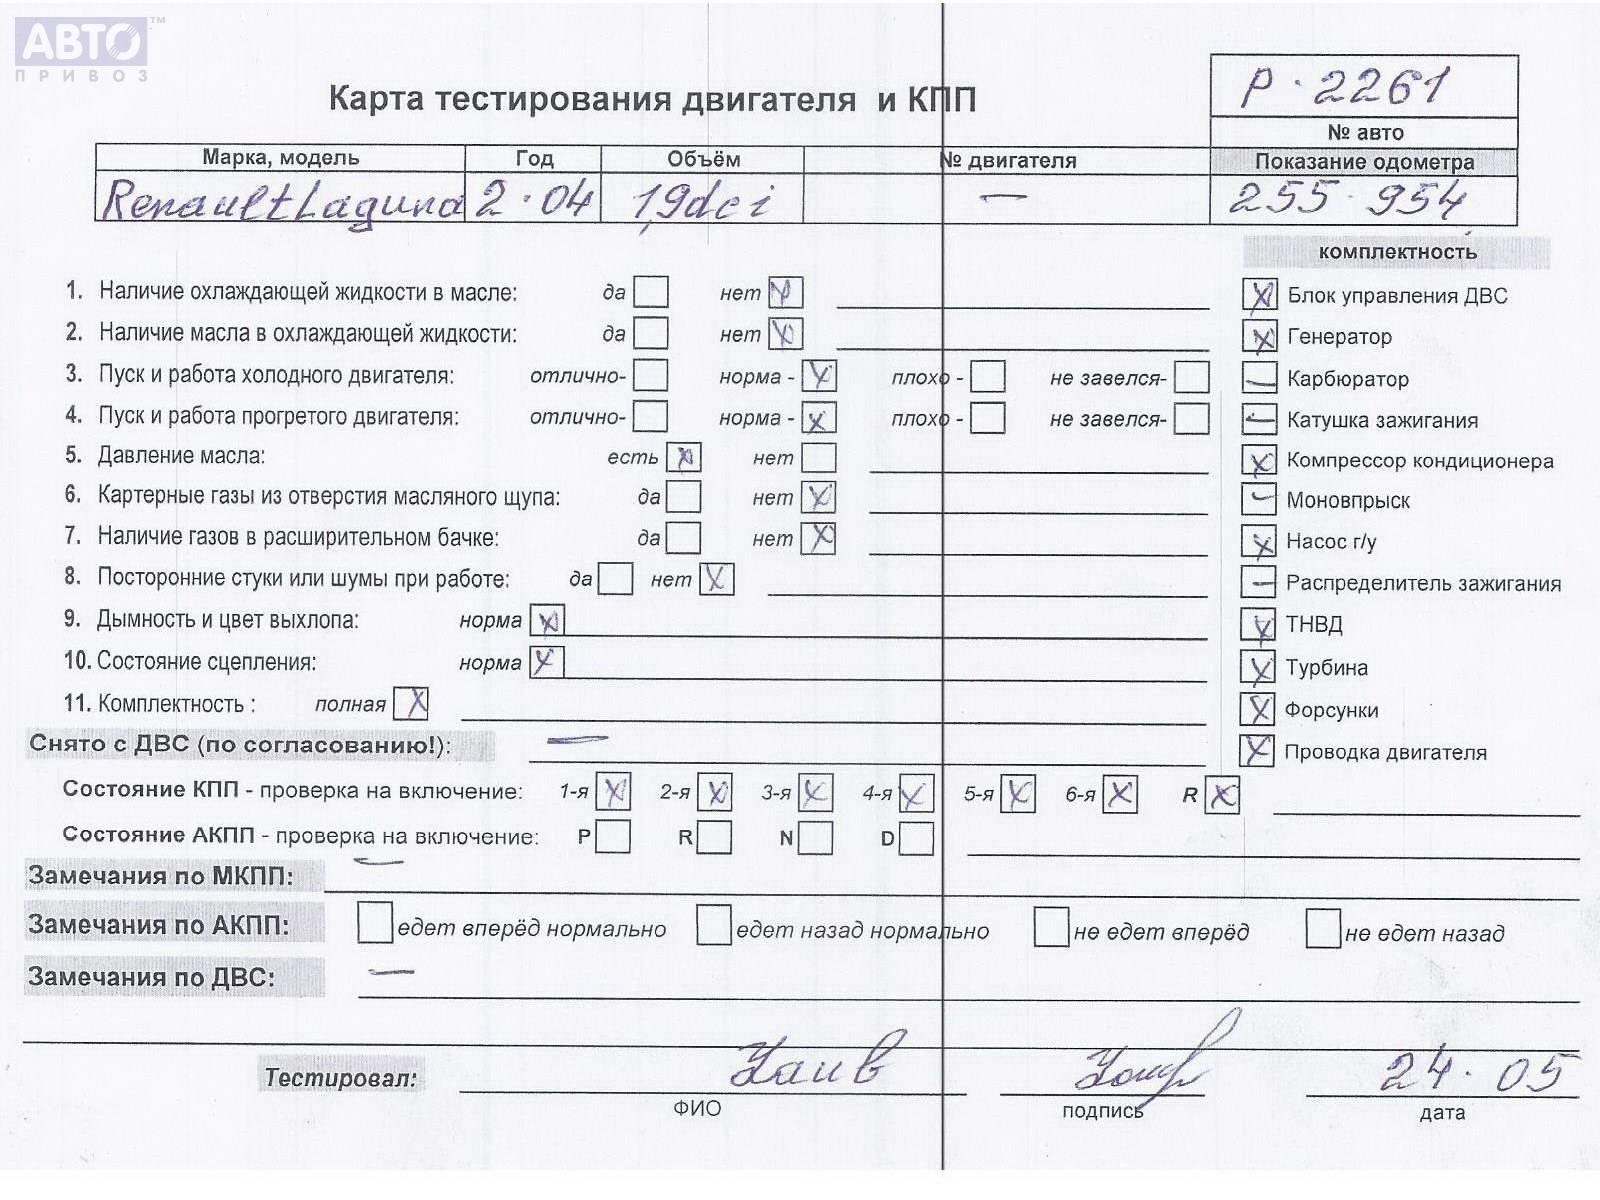 АВТО™
ПРИВОЗ
Р·2261
№ авто
Карта тестирования двигателя и КПП
Марка, модель Год Объём № двигателя Показание одометра
Renault Laguna 2·04 1,9dci — 255·954
комплектность
1. Наличие охлаждающей жидкости в масле: да нет X
X Блок управления ДВС
2. Наличие масла в охлаждающей жидкости: да нет X
X Генератор
3. Пуск и работа холодного двигателя: отлично- норма - X плохо - не завелся-
— Карбюратор
4. Пуск и работа прогретого двигателя: отлично- норма - X плохо - не завелся-
— Катушка зажигания
5. Давление масла: есть X нет
X Компрессор кондиционера
6. Картерные газы из отверстия масляного щупа: да нет X
— Моновпрыск
7. Наличие газов в расширительном бачке: да нет X
X Насос г/у
8. Посторонние стуки или шумы при работе: да нет X
— Распределитель зажигания
9. Дымность и цвет выхлопа: норма X
X ТНВД
10. Состояние сцепления: норма X
X Турбина
11. Комплектность : полная X
X Форсунки
Снято с ДВС (по согласованию!): —
X Проводка двигателя
Состояние КПП - проверка на включение: 1-я X 2-я X 3-я X 4-я X 5-я X 6-я X R X
Состояние АКПП - проверка на включение: P R N D
Замечания по МКПП: —
Замечания по АКПП: едет вперёд нормально едет назад нормально не едет вперёд не едет назад
Замечания по ДВС: —
Тестировал: 24·05
ФИО подпись дата